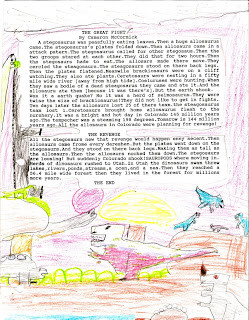 THE GREAT FIGHT
By Cameron McCormick
A stegosaurus was peacefully eating leaves.Then a huge allosaurus
came.The stegosaurus's plates folded down.Then allosaurus came in a
attack patern.The stegosaurus called for other stegosaurus.Then the
two groups stared at each other.They did that for hours.Then
the stegosaurs hade to eat.The allosaurs made there move.They
cercled the stegosaurs.The stegosaurs stood on there back legs.
Then the plates flatened.Meanwile brackiosaurs were on a cliff
watching.They also ate plants.Ceretosaurs were nesting in a fifty
mile wide river [away from high tide].Coelurosaurs were hunting.When
they saw a bodie of a dead stegosaurus they came and ate it.And the
allosaurs ate them [because it was there's],But the earth shook.
Was it a earth quake? No it was a herd of seismosaurus.They were
twise the size of brackiosaurus!They did not like to get in fights.
Two days later the allosaurs lost 25 of there team.The stegosaurus
team lost 1.Ceretosaurus stole some allosaurus flesh for the
carnhory.It was a bright and hot day in Colorado 145 million years
ago.The tempecher was a steaming 198 degrees.Tomorow is 144 million
years ago.All the allosaurs in Colorado were planning for revenge!
THE REVENGE
The stegosaurs new that revenge would happen any secent.Then
allosaurs came frome every derection.But the plates went down on the
stegosaurs.And they stood on there back legs.Making them as tall as
the allosaurs.Then the allosaurs nocked them down.The stegosaurs
were loosing! But suddenly Colorado shook!SAUROPODS where moving in.
Herds of dinosaurs rushed to Utah.In Utah the dinosaurs saw three
lakes,rivers,ponds,streams,a ocen,and a sea.Then they reached a
56.4 mile wide forest then they lived in the forest for millions
more years.
THE END